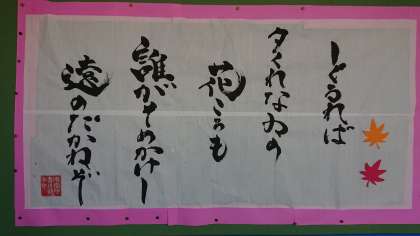 しぐるれば
夕くれなゐの
花ころも
誰がそめかけし
遠のたかねぞ